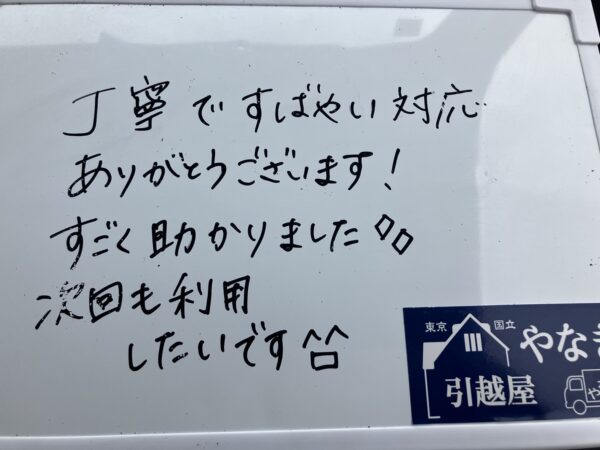 丁寧ですばやい対応
ありがとうございます！
すごく助かりました◇◇
次回も利用
したいです^□^
東京 国立
やなぎ
引越屋